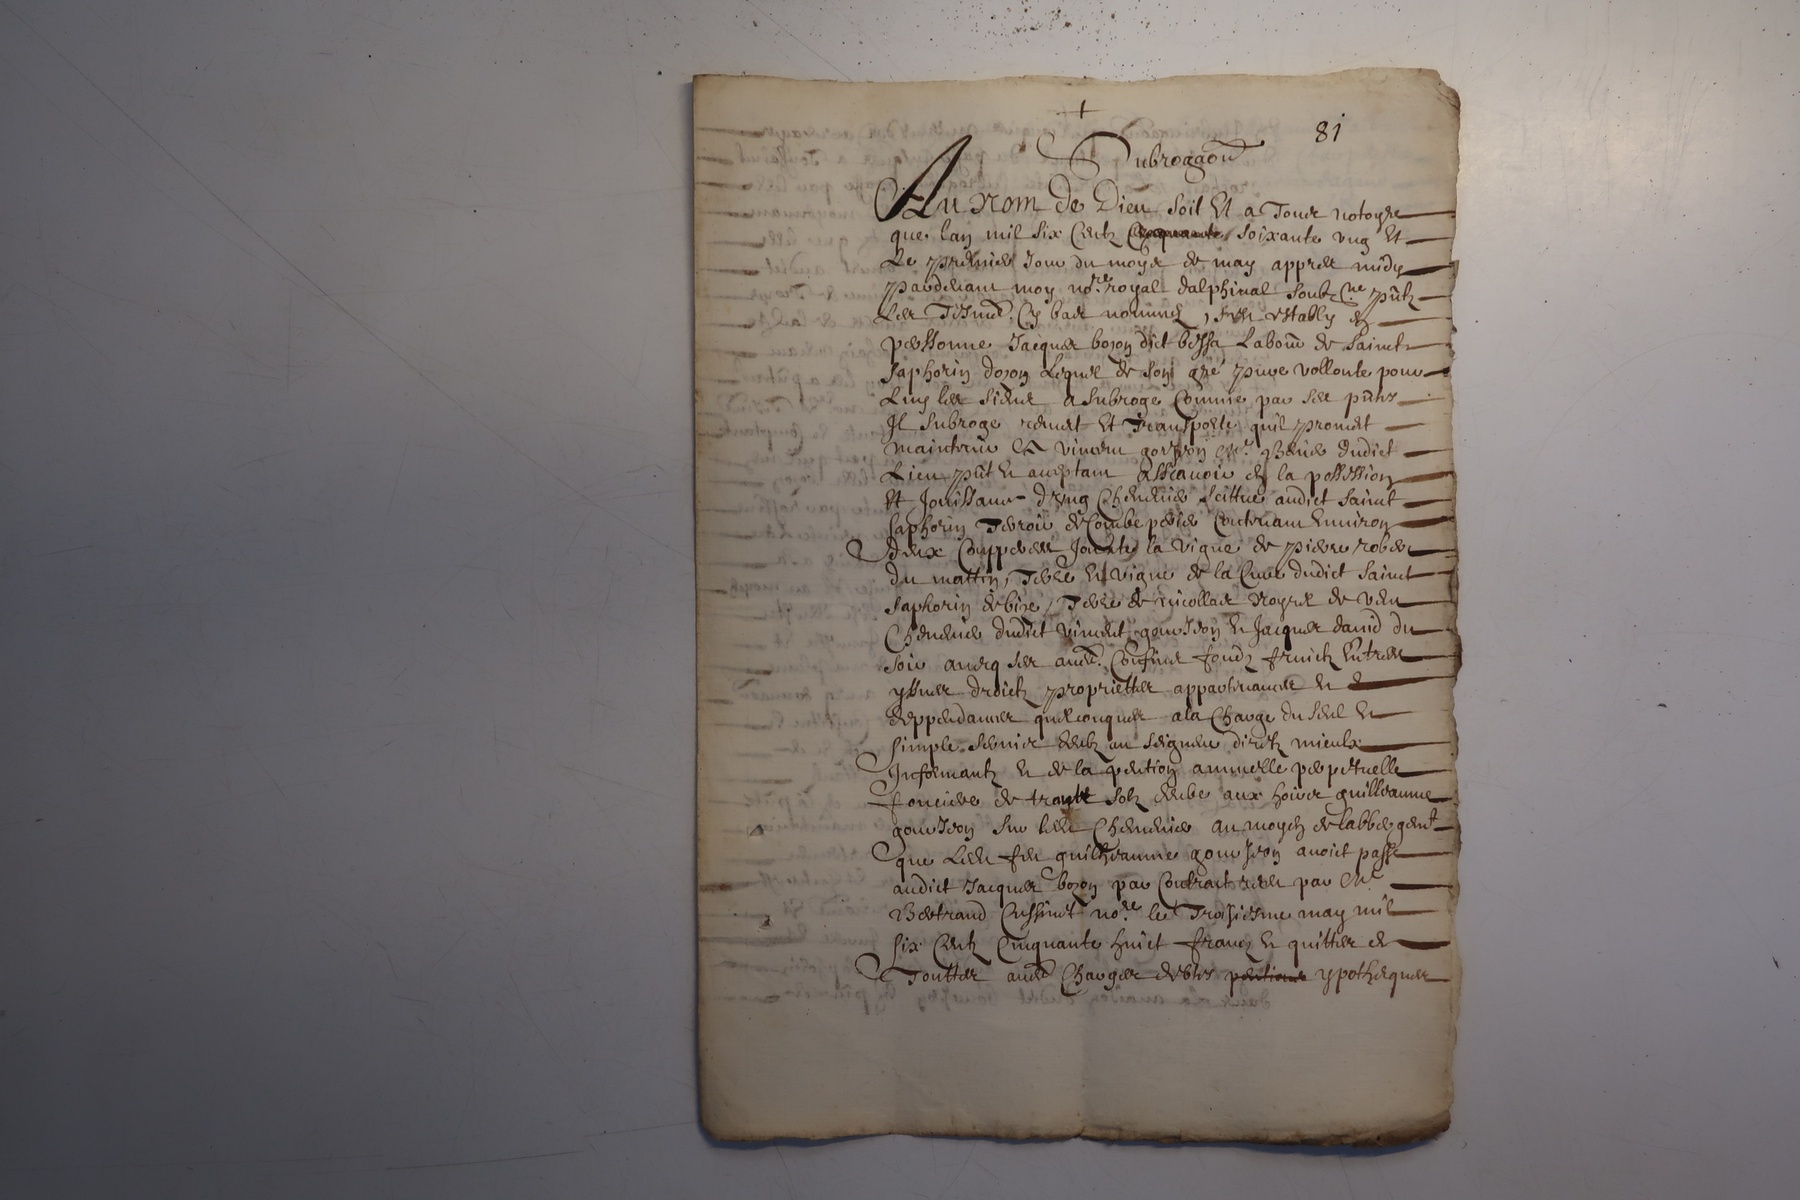 +
81
Subrogãon
Au nom de Dieu soit Et a Tous notoyre
que lan mil six Centz Cinquante soixante ung Et
Le premier Jour du moys de may appres midy
pardevant moy no.re royal dalphinal soubz.ne p̃ntz
Les Tesmㆠcy bas nommes, sest estably en
personne Jacques bozon dict bessa Labour̃ de sainct
saphorin dozon Lequel de son gré pure vollonte pour
Luy les siens a subroge Comme par ses p̃ntes
Il subroge remet Et Transporte quil promet
maintenir A vincent gourdon dudict
Lieu p̃nt Et acceptant Assavoir en la possession
Et Jouissance dung Chenevier scittue audict sainct
saphorin Terroir de Combe Contenant Environ
deux Couppees Jouxte la vigne de pierre rober
du mattin, Terre Et vigne de la Cure dudict sainct
saphorin de bize, Terre de nicollas noyrel de vent
Chenevier dudict vincent gourdon Et Jacques david du
soir avecq ses aut.s Confins fondz fruictz Entrees
yssues droictz proprietes appartenances Et
deppendances quelconques a la Charge du seul Et
simple servis deubz au seigneur directz mieulx
Informantz Et de la pention annuelle perpetuelle
fonciere de trante solz deube aux hoirs guilleaume
gourdon sur led Chenevier au moyen de labbergem.t
que Led feu guilheaume gourdon avoict passe
audict Jacques bozon par Contract receu par M.e
Bertrand Cussinet no.re le Troisiesme may mil
six Centz Cinquante huict francz Et quittes de
Touttes aut.s Charges debtes pentions ypotheques